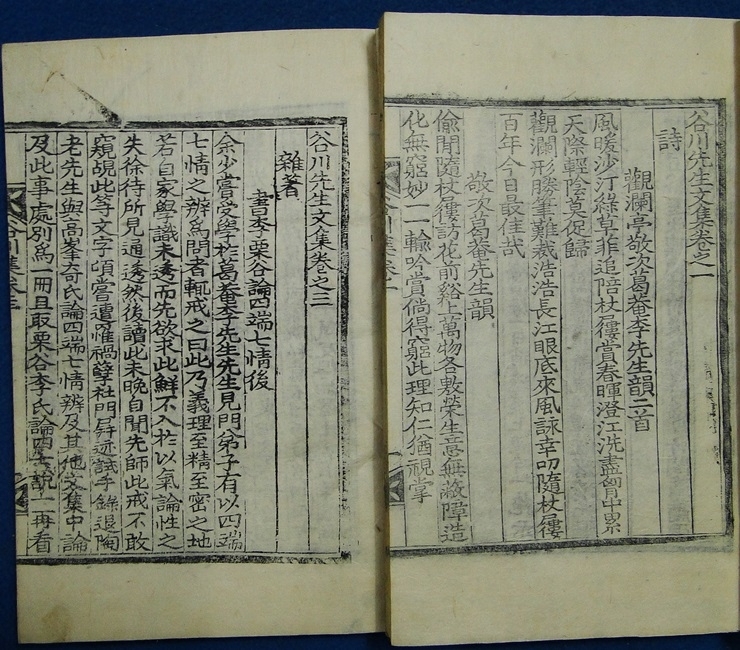 谷川先生文集卷之一
詩
觀瀾亭敬次葛菴李先生韻二首
風暖沙汀綠草菲追陪杖屨賞春暉澄江洗盡胷中累
天際輕陰莫促歸
觀瀾形勝筆難裁浩浩長江眼底來風詠幸叨隨杖屨
百年今日最佳哉
敬次葛菴先生韻
偸閒隨杖屨訪花前谿上萬物各敷榮生意無蔽障造
化無窮妙一一輸吟賞倘得窮此理知仁猶視掌
谷川先生文集卷之三
雜著
書李栗谷論四端七情後
余少嘗受學於葛菴李先生先生見門弟子有以四端
七情之辨爲問者輒戒之曰此乃義理至精至密之地
若自家學識未透而先欲求此鮮不入於以氣論性之
失徐待所見通透然後讀此未晩自聞先師此戒不敢
窺覘此等文字頃嘗遭罹禍孼杜門屛迹試手錄退陶
老先生與高峯奇氏論四端七情辨及其他文集中論
及此事處別爲一冊且取栗谷李氏論四七說一再看
谷川集卷三